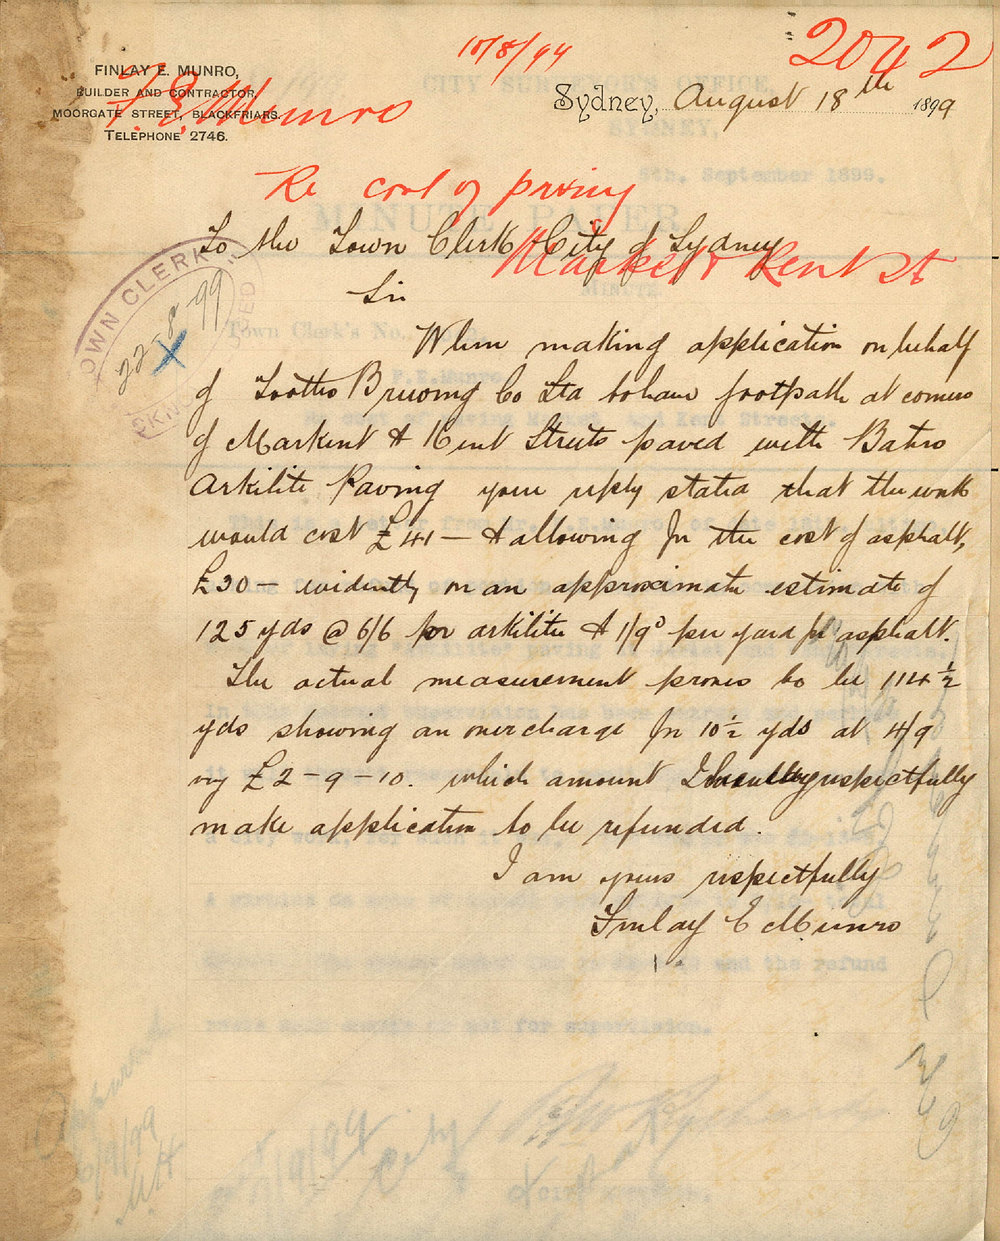 18/8/99
2042
FINLAY E. MUNRO,
BUILDER AND CONTRACTOR,
MOORGATE STREET, BLACKFRIARS.
TELEPHONE 2746.
F. E. Munro
Sydney, August 18th 1899
Re cost of paving
Market & Kent St
To the Town Clerk City of Sydney
TOWN CLERK
22-8-99
Sir
When making application on behalf
of Tooths Brewing Co Ltd to have footpath at corners
of Markent & Kent Streets paved with
Arkilite Paving your reply stated that the work
would cost £41 — & allowing for the cost of asphalt,
£30 — evidently on an approximate estimate of
125 yds @ 6/6 for arkilite & 1/9 per yard for asphalt.
The actual measurement proves to be 114 ½
yds showing an overcharge for 10 ½ yds at 4/9
viz £2-9-10. which amount I respectfully
make application to be refunded.
I am yours respectfully
Finlay E Munro
CITY SURVEYOR'S OFFICE,
SYDNEY,
6th. September 1899.
MINUTE PAPER
MINUTE
Town Clerk's No.
F.E.Munro
Re cost of paving Market and Kent Streets.
and the refund
for supervision.